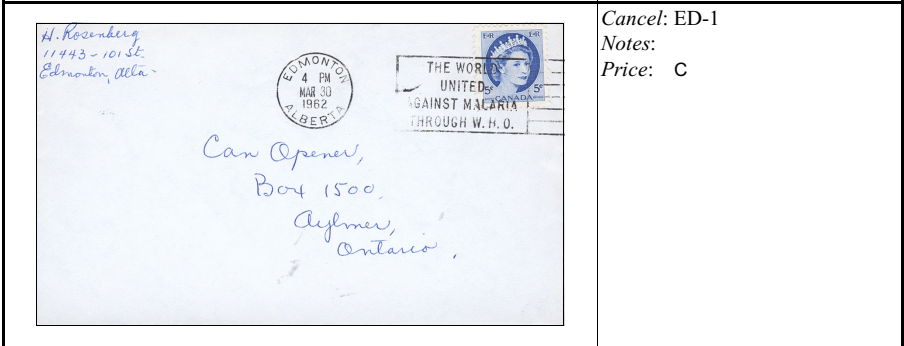 H. Rosenberg
11443 - 101 St.
Edmonton, Alta.
EDMONTON
4 PM
MAR 30
1962
ALBERTA
THE WORLD
UNITED
AGAINST MALARIA
THROUGH W.H.O.
E R E R
5c 5c
CANADA
Can Opener,
Box 1500,
Aylmer,
Ontario,
Cancel: ED-1
Notes:
Price: C